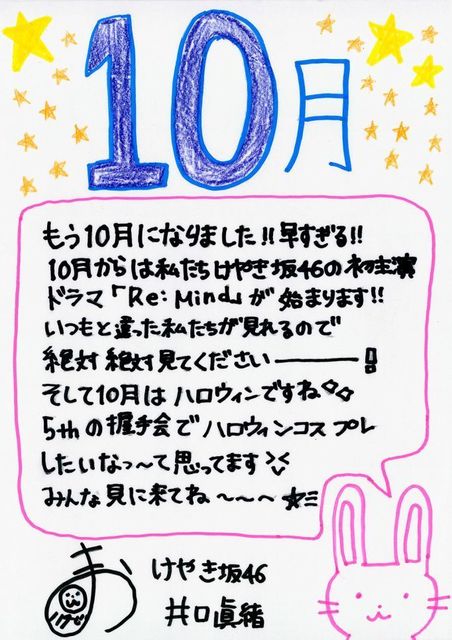 10月
もう10月になりました!!早すぎる!!
10月からは私たちけやき坂46の初主演
ドラマ「Re:Mind」が始まります!!
いつもと違った私たちが見れるので
絶対絶対見てくださいーーー!!
そして10月はハロウィンですね
5thの握手会でハロウィンコスプレ
したいなっ〜て思ってます
みんな見に来てね〜〜〜☆ミ
けやき坂46
井口眞緒